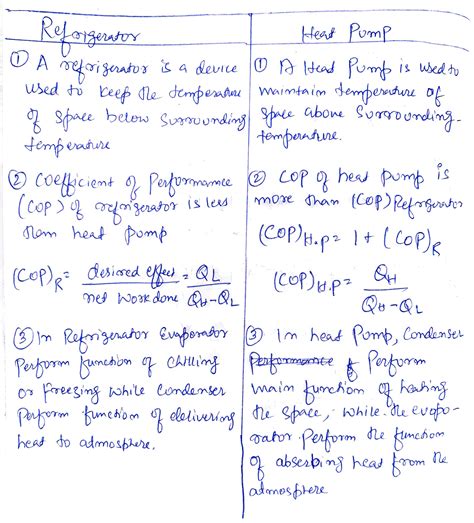 Refrigerator
① A refrigerator is a device
used to keep the temperature
of space below surrounding
temperature
② Coefficient of Performance
(COP) of refrigerator is less
than heat pump
(COP)R = desired effect / net work done = QL / QH-QL
③ In Refrigerator Evaporator
Perform function of chilling
or freezing while condenser
Perform function of delivering
heat to atmosphere.
Heat Pump
① A Heat Pump is used to
maintain temperature of
space above surrounding
temperature.
② COP of heat pump is
more than (COP) Refrigerator
(COP)H.P = 1 + (COP)R
(COP)H.P = QH / QH-QL
③ In heat Pump, Condenser
Performance Perform
main function of heating
the space, while the evapo-
rator Perform the function
of absorbing heat from the
atmosphere